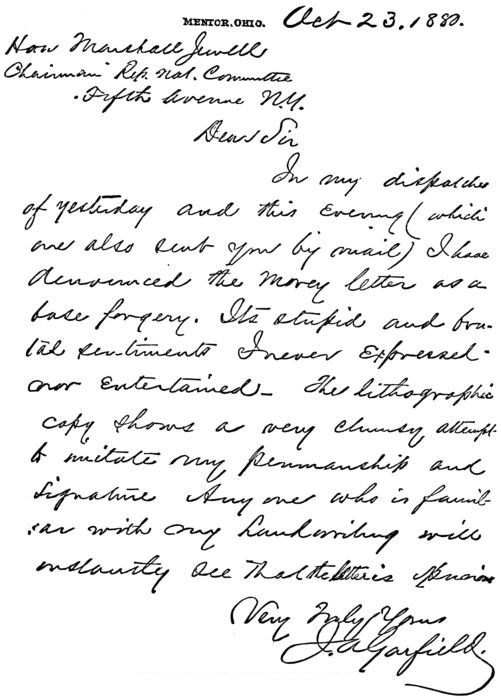 MENTOR, OHIO. Oct 23, 1880.
Hon Marshall Jewell
Chairman Rep. Nat. Committee
Fifth Avenue N.Y.
Dear Sir
In my dispatches
of yesterday and this evening (which
are also sent you by mail) I have
denounced the Morey letter as a
base forgery. Its stupid and bru-
tal sentiments I never expressed
nor entertained – The lithographic
copy shows a very clumsy attempt
to imitate my penmanship and
signature Any one who is famil-
iar with my handwriting will
instantly see that the letter is spurious
Very Truly Yours
J. A. Garfield.